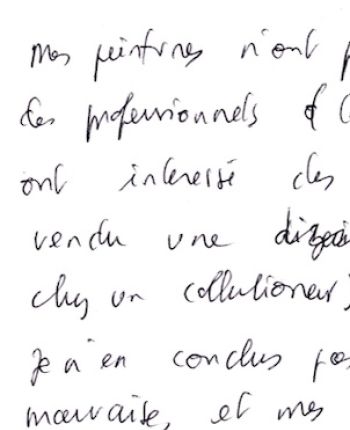 Mes peintures n'ont p
des professionnels d
ont interessé des
vendu une dizai
chez un collectioneur,
Je n'en conclus pas
mauvaise, et mes